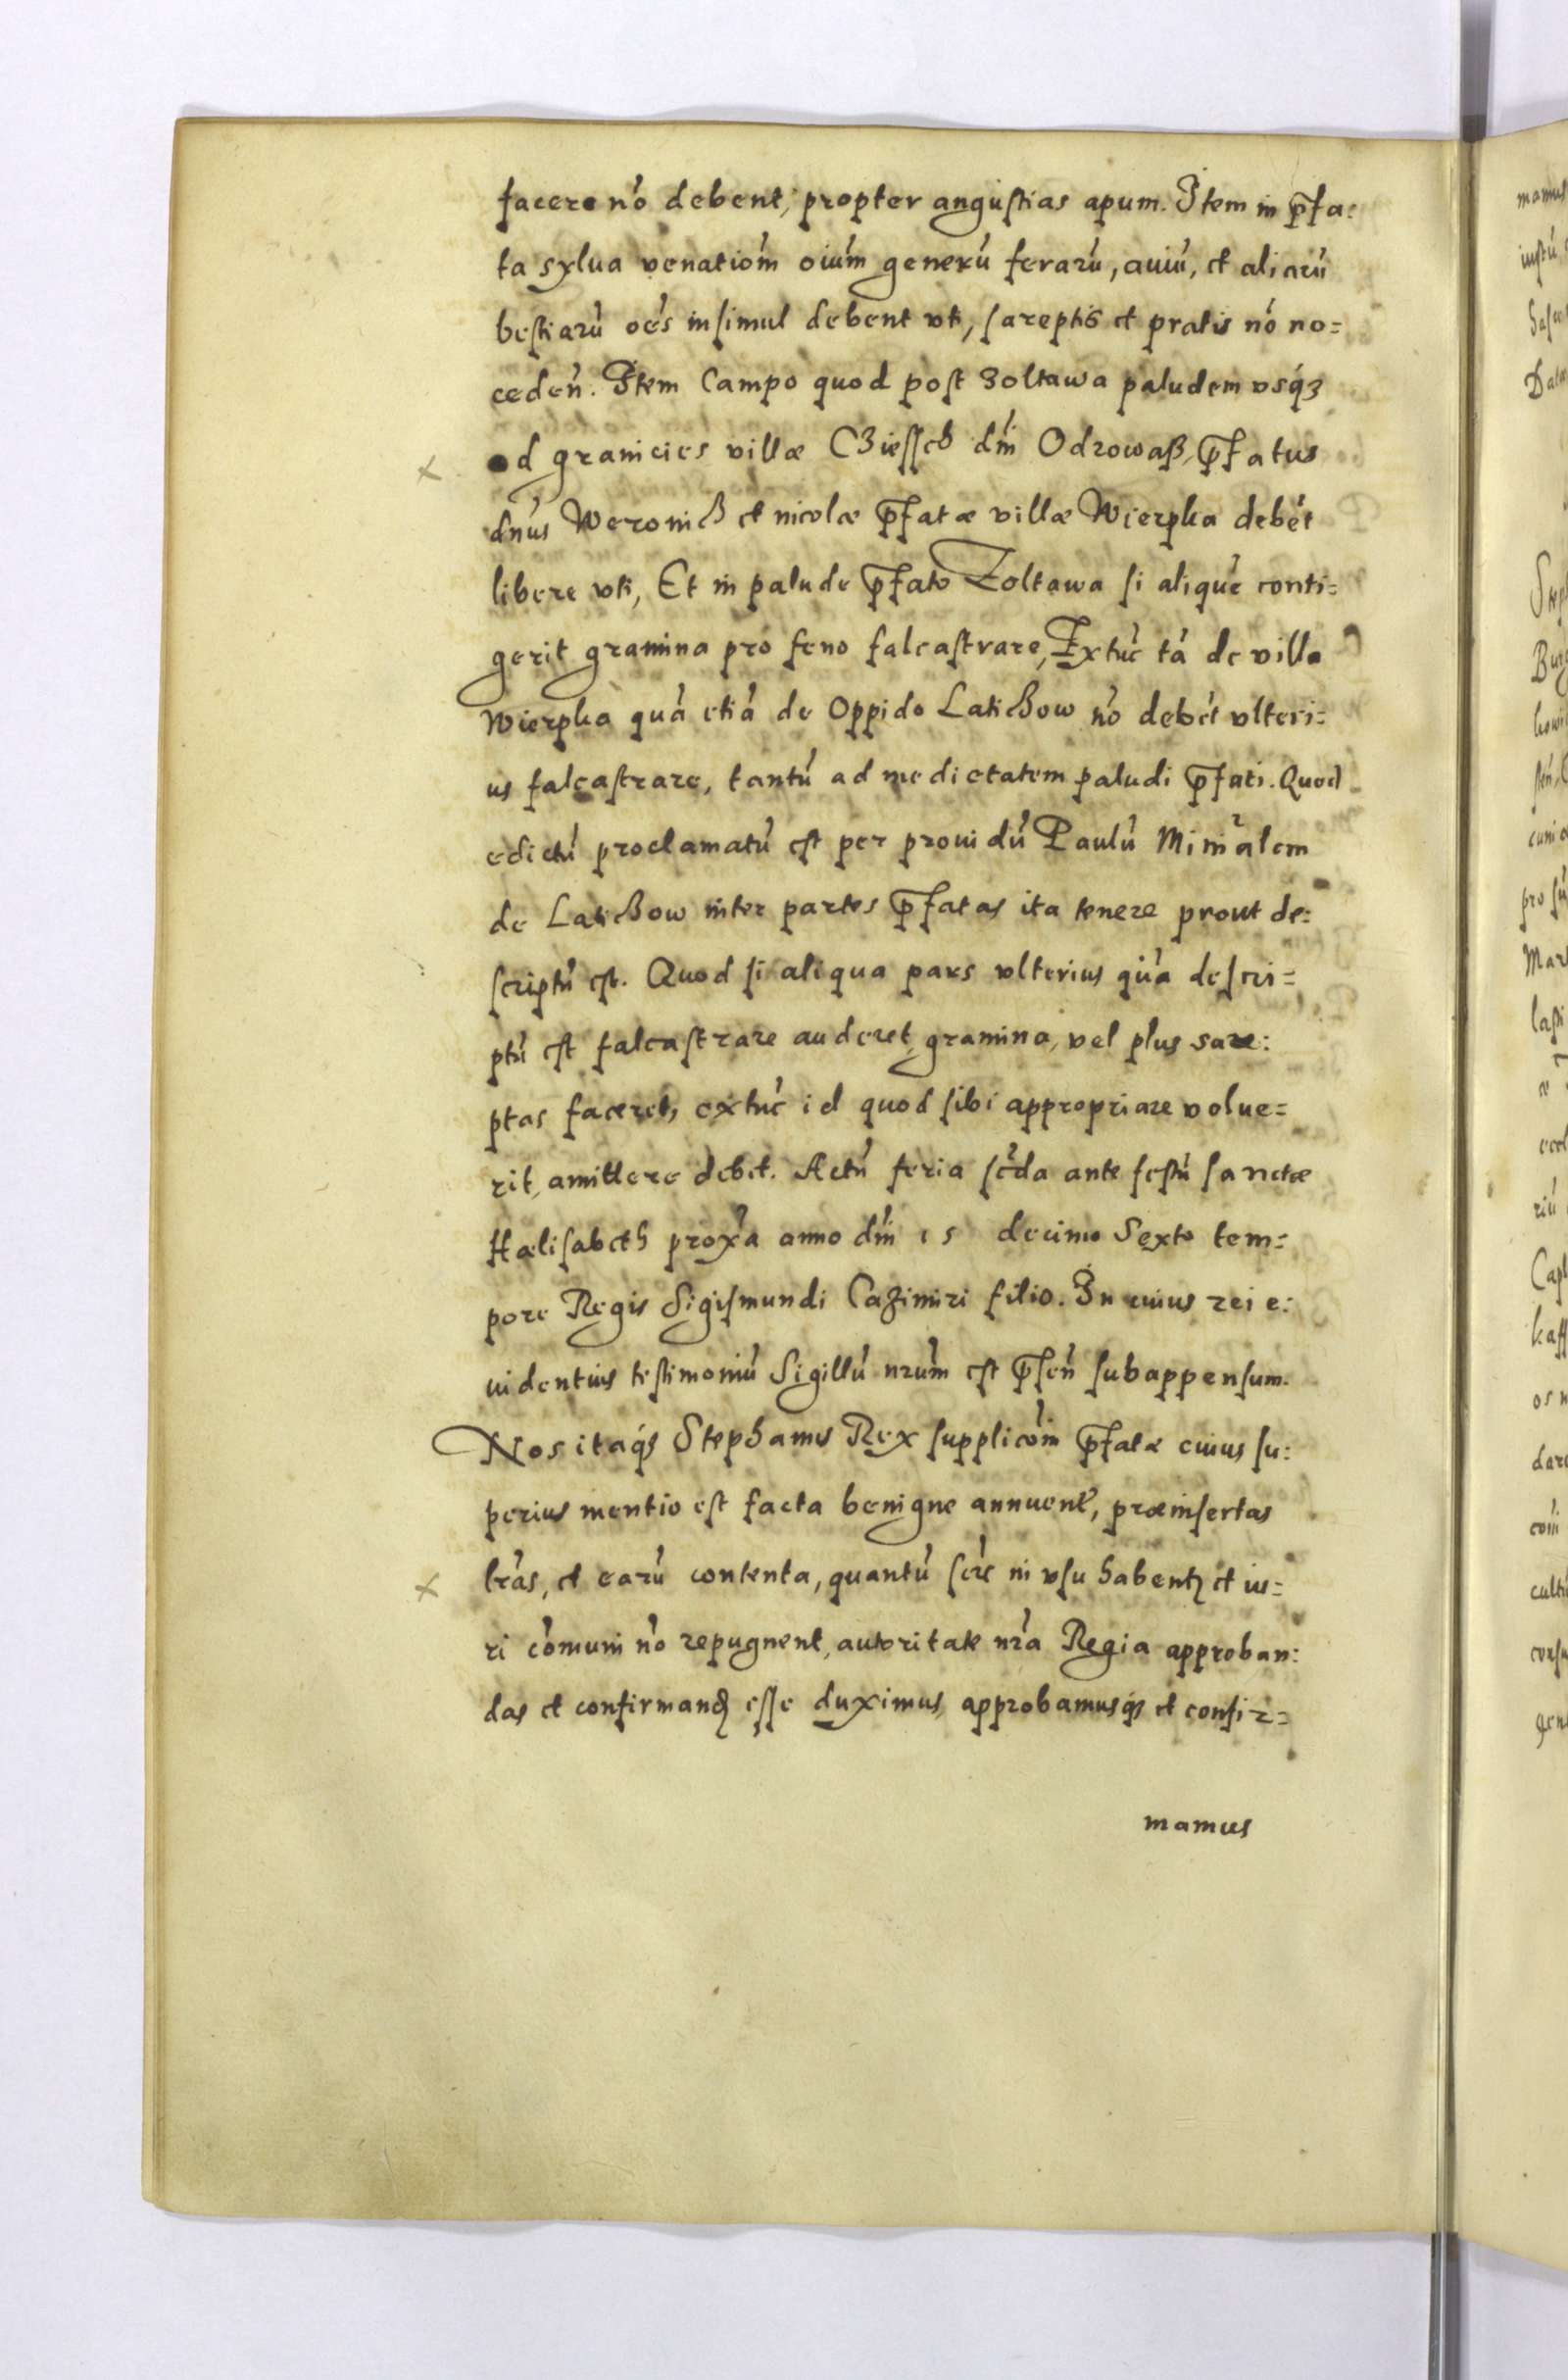 facere nō debent, propter angustias apum. Item in p̄fa:
ta sylua venatiōm oiūm generū ferarū, aviū, et aliarū
bestiarū oēs insimul debent vti, sareptis et pratis nō no=
ceden̄. Item Campo quod post Zoltawa paludem vsq́ꝫ
ad granicies villæ Cziessch dn̄i Odrowasz, p̄fatus
dn̄us Weronich et incolæ p̄fatæ villæ Wierpka debēt
libere vti, Et in palude p̄fato Zoltawa si aliquē conti=
gerit gramina pro feno falcastrare, Extūc tā de villa
Wierpka quā etiā de Oppido Latichow nō debēt vlteri=
us falcastrare, tantū ad medietatem paludi p̄fati. Quod
edictū proclamatū est per prouidū Paulū Minr̄alem
de Latichow inter partes p̄fatas ita tenere prout de:
scriptū est. Quod si aliqua pars vlterius quā descri=
ptū est falcastrare auderet, gramina, vel plus sare:
ptas faceret, extūc id quod sibi appropriare volue=
rit, amittere debet. Actū feria sc̄da ante festū sanctæ
Hælisabeth prox̄a anno dn̄i 15 decimo Sexto tem=
pore Regis Sigismundi Cazimiri filio. In cuius rei e:
uidentius testimoniū Sigillū nrūm est p̄sen̄ subappensum.
Nos itaq́ꝫ Stephanus Rex supplicōm p̄fatæ cuius su:
perius mentio est facta benigne annuent̄, præinsertas
lrās, et earū contenta, quantū scr̄e in vsu habentꝫ et iu=
ri cōmuni nō repugnent, autoritate nrā Regia approban:
das et confirmandꝫ esse duximus, approbamusq́ꝫ et confir=
mamus